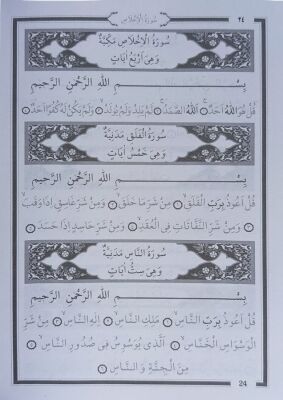 ٢٤ سُورَةُ الْاِخْلَاصِ
سُورَةُ الْاِخْلَاصِ مَكِّيَّةٌ
وَهِىَ اَرْبَعُ اٰيَاتٍ
بِسْمِ اللّٰهِ الرَّحْمٰنِ الرَّحِيمِ
قُلْ هُوَ اللّٰهُ اَحَدٌ ۝ اَللّٰهُ الصَّمَدُ ۝ لَمْ يَلِدْ وَلَمْ يُولَدْ ۝ وَلَمْ يَكُنْ لَهُ كُفُوًا اَحَدٌ ۝
سُورَةُ الْفَلَقِ مَدَنِيَّةٌ
وَهِىَ خَمْسُ اٰيَاتٍ
بِسْمِ اللّٰهِ الرَّحْمٰنِ الرَّحِيمِ
قُلْ اَعُوذُ بِرَبِّ الْفَلَقِ ۝ مِنْ شَرِّ مَا خَلَقَ ۝ وَمِنْ شَرِّ غَاسِقٍ اِذَا وَقَبَ
۝ وَمِنْ شَرِّ النَّفَّاثَاتِ فِى الْعُقَدِ ۝ وَمِنْ شَرِّ حَاسِدٍ اِذَا حَسَدَ ۝
سُورَةُ النَّاسِ مَدَنِيَّةٌ
وَهِىَ سِتُّ اٰيَاتٍ
بِسْمِ اللّٰهِ الرَّحْمٰنِ الرَّحِيمِ
قُلْ اَعُوذُ بِرَبِّ النَّاسِ ۝ مَلِكِ النَّاسِ ۝ اِلٰهِ النَّاسِ ۝ مِنْ شَرِّ
الْوَسْوَاسِ الْخَنَّاسِ ۝ اَلَّذِى يُوَسْوِسُ فِى صُدُورِ النَّاسِ ۝
مِنَ الْجِنَّةِ وَ النَّاسِ ۝
24